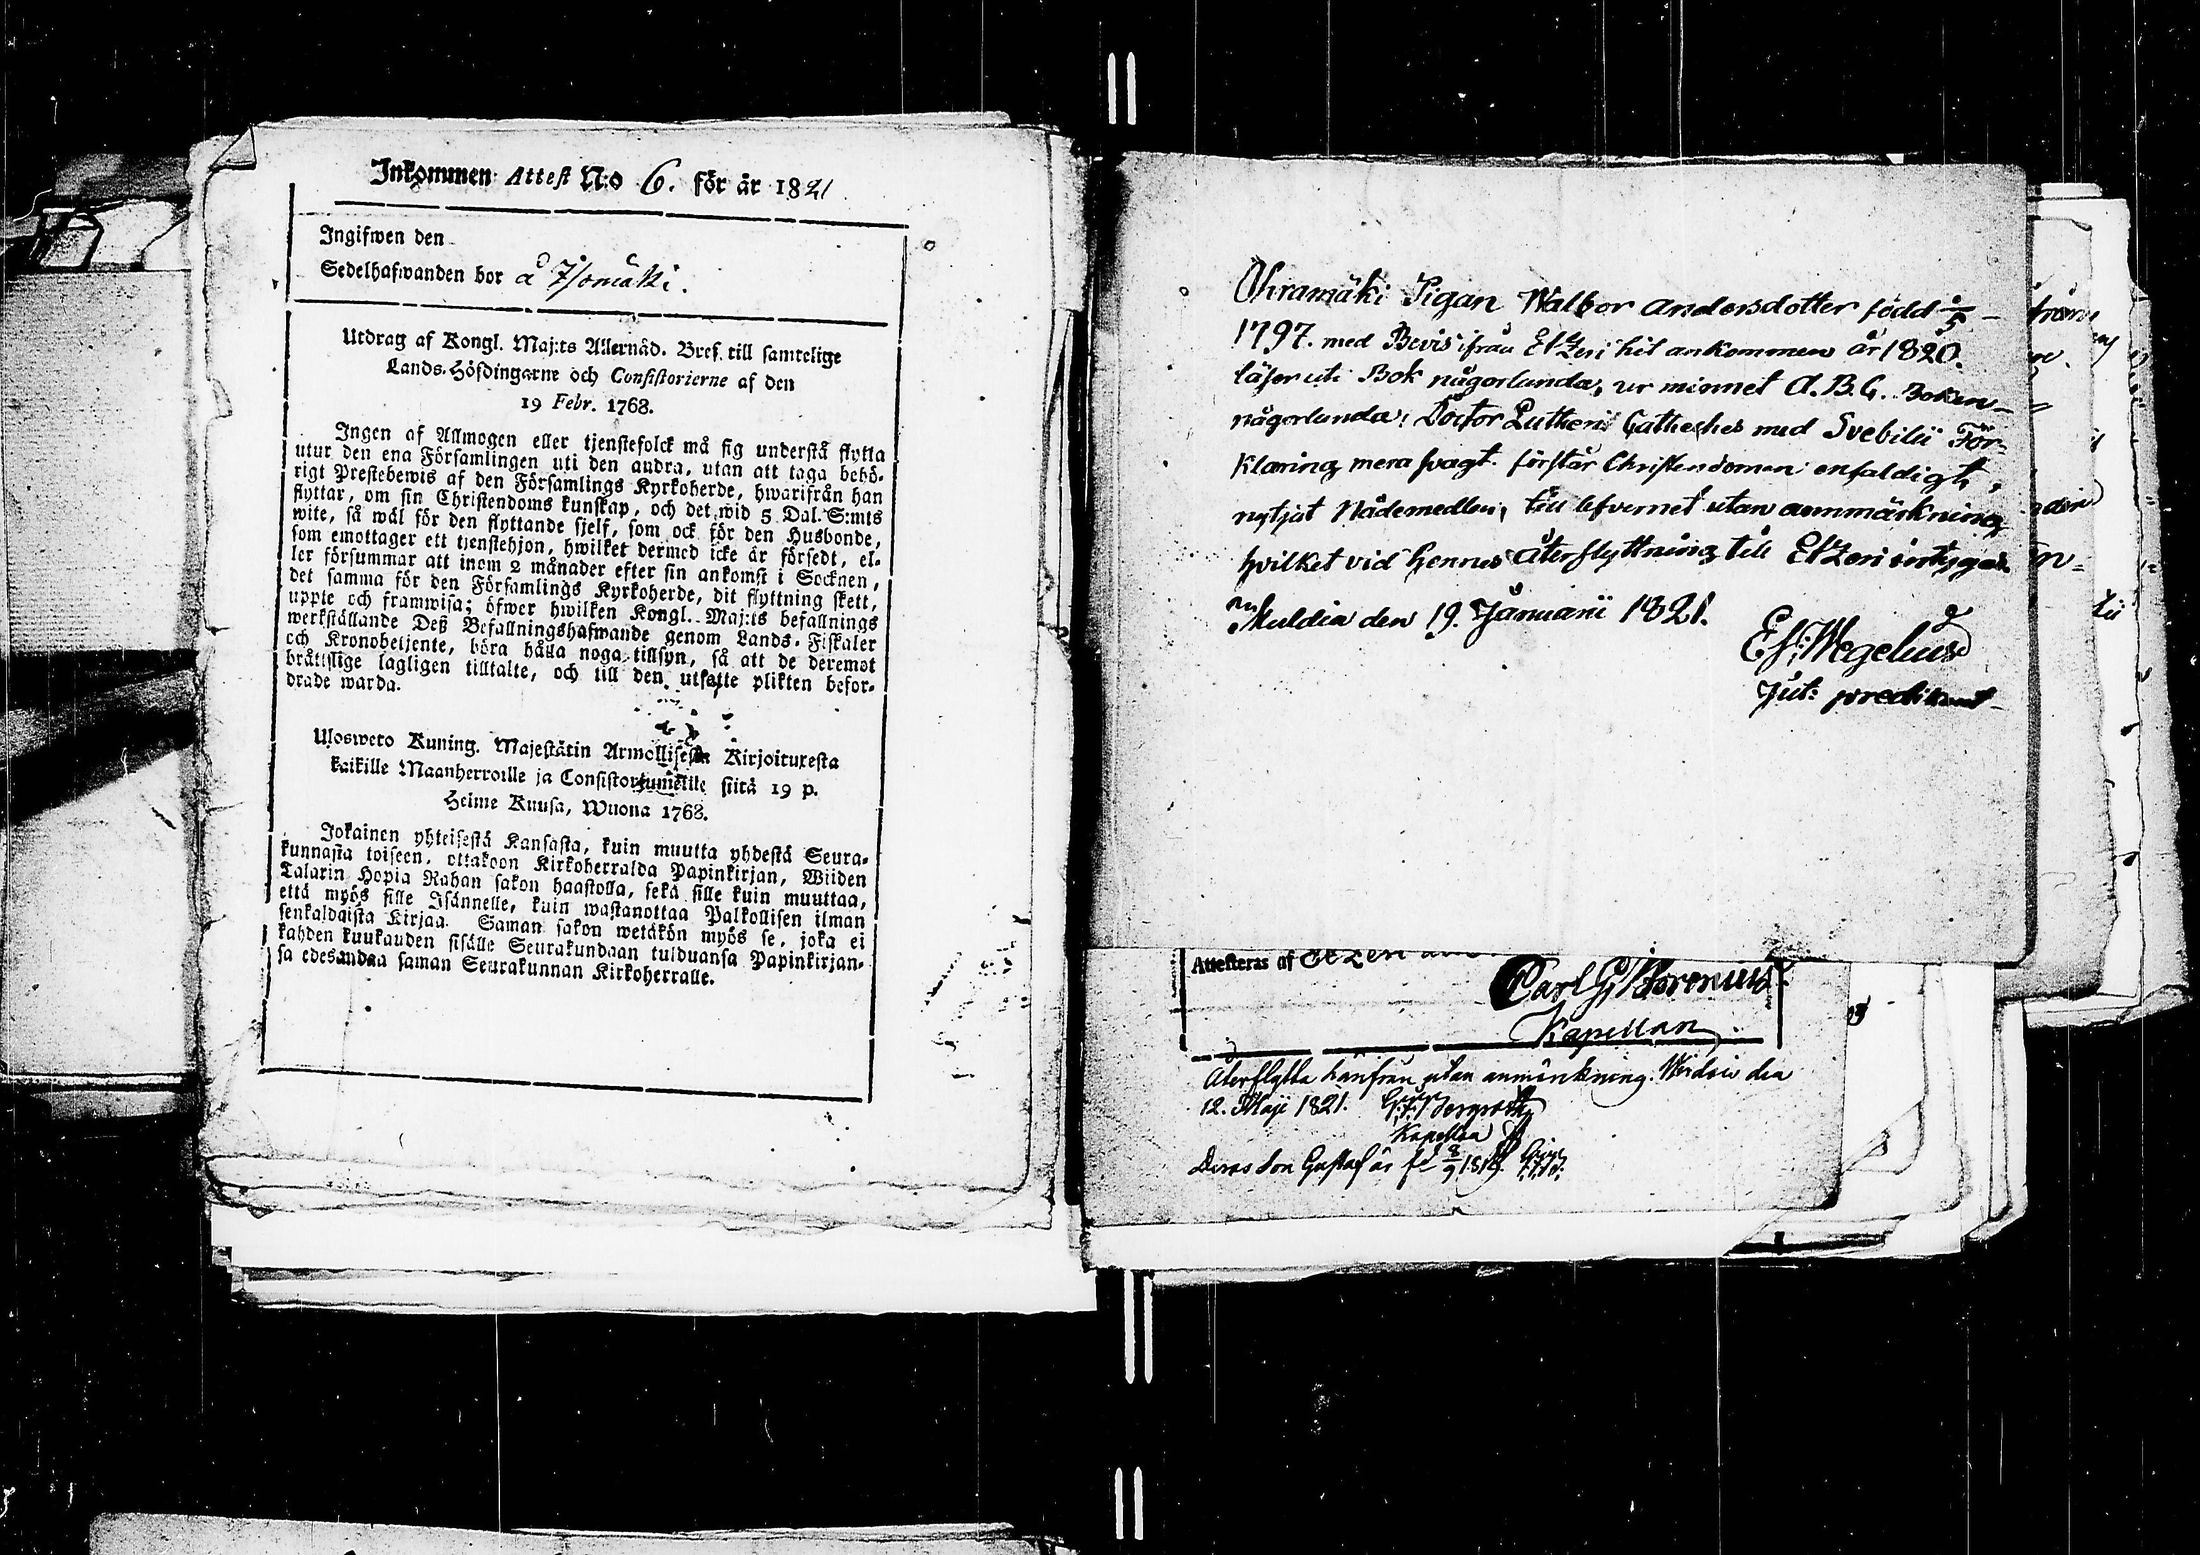 Inkommen Attest N:o 6. för år 1821
Ingifwen den
Sedelhafwanden bor å Isomäki.
Utdrag af Kongl. Maj:ts Allernåd. Bref till samtelige
Lands-Höfdingarne och Consistorierne af den
19 Febr. 1768.
Ingen af Allmogen eller tjenstefolck må sig understå flytta
utur den ena Församlingen uti den andra, utan att taga behö-
rigt Prestebewis af den Församlings Kyrkoherde, hwarifrån han
flyttar, om sin Christendoms kunskap, och det wid 5 Dal. S:mts
wite, så wäl för den flyttande sjelf, som ock för den Husbonde,
som emottager ett tjenstehjon, hwilket dermed icke är försedt, el-
ler försummar att inom 2 månader efter sin ankomst i Socknen,
det samma för den Församlings Kyrkoherde, dit flyttning skett,
uppte och framwisa; öfwer hwilken Kongl. Maj:ts befallnings
werkställande Deß Befallningshafwande genom Lands-Fiskaler
och Kronobetjente, böra hålla noga tillsyn, så att de deremot
bråttslige lagligen tilltalte, och till den utsatte plikten befor-
drade warda.
Ulosweto Kuning. Majestätin Armollisesta Kirjoituxesta
kaikille Maanherroille ja Consistoriumeille siitä 19 p.
Helme Kuusa, Wuona 1768.
Jokainen yhteisestä Kansasta, kuin muutta yhdestä Seura-
kunnasta toiseen, ottakoon Kirkoherralda Papinkirjan, Wiiden
Talarin Hopia Rahan sakon haastolla, sekä sille kuin muuttaa,
että myös sille Isännelle, kuin wastanottaa Palkollisen ilman
senkaldaista Kirjaa. Saman sakon wetäkön myös se, joka ei
kahden kuukauden sisälle Seurakundaan tulduansa Papinkirjan-
sa edesandaa saman Seurakunnan Kirkoherralle.
Ohramäki Pigan Walbor Andersdotter född
1797. med Bevis ifrån Etzeri hit ankommen år 1820.
läser uti Bok någorlunda, ur minnet A.B.C. Boken
någorlunda, Doctor Lutheri Catheches med Svebilii För-
klaring mera svagt. förstår Christendomen enfaldigt,
nytjat Nådemedlen, till lefvernet utan anmärkning
hvilket vid hennes återflyttning till Etzeri intygas
Muldia den 19. Januarii 1821.
Es: Wegelius
Jut: predikant
Attesteras af Etzeri
Carl G. Borenius
Kapellan
Återflytta härifrån utan anmärkning. Wirdois den
12. Maji 1821. G.F. Bergroth
Kapellan
Deras Son Gustaf är